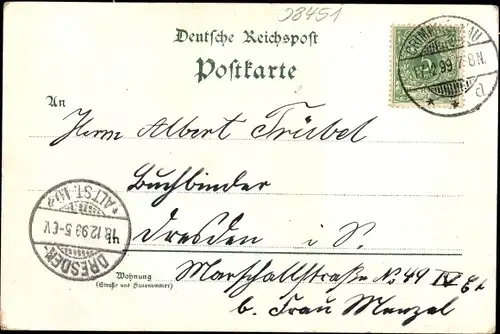 08451
Deutsche Reichspost
Postkarte
An
Herrn Albert Trübel
Buchbinder
in Dresden i S.
Wohnung
(Straße und Hausnummer)
Marschallstraße No 49 IV
b. Frau Menzel
12 99 7-8N.
DRESDEN
ALTST.
18.12.99.5-6V.